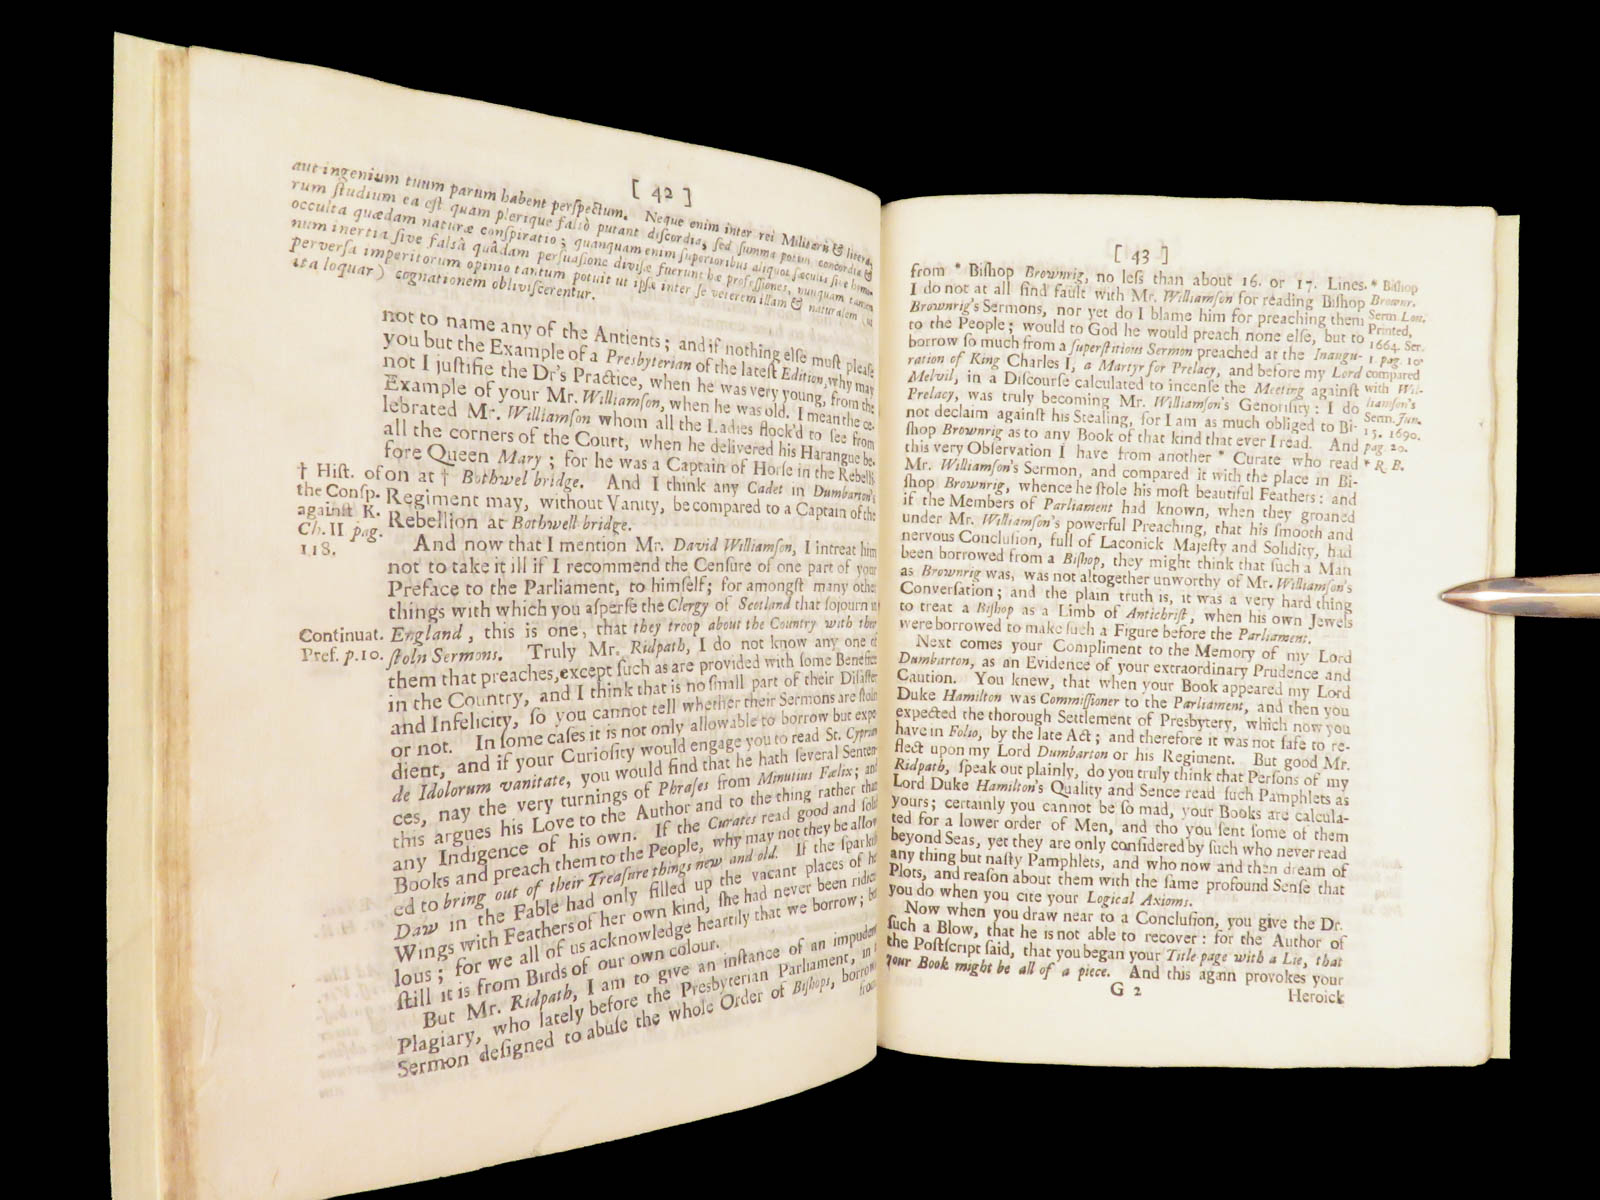 [ 42 ]
aut ingenium tuum parum habent perſpectum. Neque enim inter rei Militaris & litera-
rum ſtudium ea eſt quam plerique falſò putant diſcordia, ſed ſumma potius concordia &
occulta quædam naturæ conſpiratio; quanquam enim ſuperioribus aliquot ſæculis ſive homi-
num inertia ſive falſâ quâdam perſuaſione diviſæ fuerunt hæ profeſſiones, nunquam tamen
perverſa imperitorum opinio tantum potuit ut ipſæ inter ſe veterem illam & naturalem (ut
ita loquar) cognationem obliviſcerentur.
not to name any of the Antients; and if nothing elſe muſt pleaſe
you but the Example of a Presbyterian of the lateſt Edition, why may
not I juſtifie the Dr's Practice, when he was very young, from the
Example of your Mr. Williamſon, when he was old. I mean the ce-
lebrated Mr. Williamſon whom all the Ladies flock'd to ſee from
all the corners of the Court, when he delivered his Harangue be-
fore Queen Mary; for he was a Captain of Horſe in the Rebelli-
on at † Bothwel bridge. And I think any Cadet in Dumbarton's
Regiment may, without Vanity, be compared to a Captain of the
Rebellion at Bothwell bridge.
† Hiſt. of
the Conſp.
againſt K.
Ch. II pag.
118.
And now that I mention Mr. David Williamſon, I intreat him
not to take it ill if I recommend the Cenſure of one part of your
Preface to the Parliament, to himſelf; for amongſt many other
things with which you aſperſe the Clergy of Scotland that ſojourn in
England, this is one, that they troop about the Country with their
ſtoln Sermons. Truly Mr. Ridpath, I do not know any one of
them that preaches, except ſuch as are provided with ſome Benefice
in the Country, and I think that is no ſmall part of their Diſaſter
and Infelicity, ſo you cannot tell whether their Sermons are ſtoln
or not. In ſome caſes it is not only allowable to borrow but expe-
dient, and if your Curioſity would engage you to read St. Cyprian
de Idolorum vanitate, you would find that he hath ſeveral Senten-
ces, nay the very turnings of Phraſes from Minutius Fælix; and
this argues his Love to the Author and to the thing rather than
any Indigence of his own. If the Curates read good and ſolid
Books and preach them to the People, why may not they be allow-
ed to bring out of their Treaſure things new and old. If the ſparkiſh
Daw in the Fable had only filled up the vacant places of her
Wings with Feathers of her own kind, ſhe had never been ridicu-
lous; for we all of us acknowledge heartily that we borrow; but
ſtill it is from Birds of our own colour.
Continuat.
Pref. p. 10.
But Mr. Ridpath, I am to give an inſtance of an impudent
Plagiary, who lately before the Presbyterian Parliament, in a
Sermon deſigned to abuſe the whole Order of Biſhops, borrow'd
from
[ 43 ]
from * Biſhop Brownrig, no leſs than about 16. or 17. Lines.
I do not at all find fault with Mr. Williamſon for reading Biſhop
Brownrig's Sermons, nor yet do I blame him for preaching them
to the People; would to God he would preach none elſe, but to
borrow ſo much from a ſuperſtitious Sermon preached at the Inaugu-
ration of King Charles I, a Martyr for Prelacy, and before my Lord
Melvil, in a Diſcourſe calculated to incenſe the Meeting againſt
Prelacy, was truly becoming Mr. Williamſon's Genoriſity: I do
not declaim againſt his Stealing, for I am as much obliged to Bi-
ſhop Brownrig as to any Book of that kind that ever I read. And
this very Obſervation I have from another * Curate who read
Mr. Williamſon's Sermon, and compared it with the place in Bi-
ſhop Brownrig, whence he ſtole his moſt beautiful Feathers: and
if the Members of Parliament had known, when they groaned
under Mr. Williamſon's powerful Preaching, that his ſmooth and
nervous Concluſion, full of Laconick Majeſty and Solidity, had
been borrowed from a Biſhop, they might think that ſuch a Man
as Brownrig was, was not altogether unworthy of Mr. Williamſon's
Converſation; and the plain truth is, it was a very hard thing
to treat a Biſhop as a Limb of Antichriſt, when his own Jewels
were borrowed to make ſuch a Figure before the Parliament.
* Biſhop
Brownr.
Serm. Lon.
Printed,
1664. Ser.
1. pag. 10.
compared
with Wil-
liamſon's
Serm. Jun.
15. 1690.
pag. 20.
* R. B.
Next comes your Compliment to the Memory of my Lord
Dumbarton, as an Evidence of your extraordinary Prudence and
Caution. You knew, that when your Book appeared my Lord
Duke Hamilton was Commiſſioner to the Parliament, and then you
expected the thorough Settlement of Presbytery, which now you
have in Folio, by the late Act; and therefore it was not ſafe to re-
flect upon my Lord Dumbarton or his Regiment. But good Mr.
Ridpath, ſpeak out plainly, do you truly think that Perſons of my
Lord Duke Hamilton's Quality and Sence read ſuch Pamphlets as
yours; certainly you cannot be ſo mad, your Books are calcula-
ted for a lower order of Men, and tho you ſent ſome of them
beyond Seas, yet they are only conſidered by ſuch who never read
any thing but naſty Pamphlets, and who now and then dream of
Plots, and reaſon about them with the ſame profound Senſe that
you do when you cite your Logical Axioms.
Now when you draw near to a Concluſion, you give the Dr.
ſuch a Blow, that he is not able to recover: for the Author of
the Poſtſcript ſaid, that you began your Title page with a Lie, that
your Book might be all of a piece. And this again provokes your
G 2
Heroick